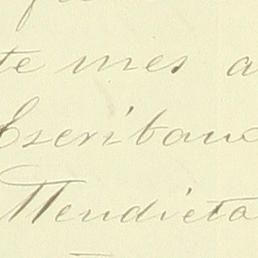 te mes a
Escribano
Mendieta